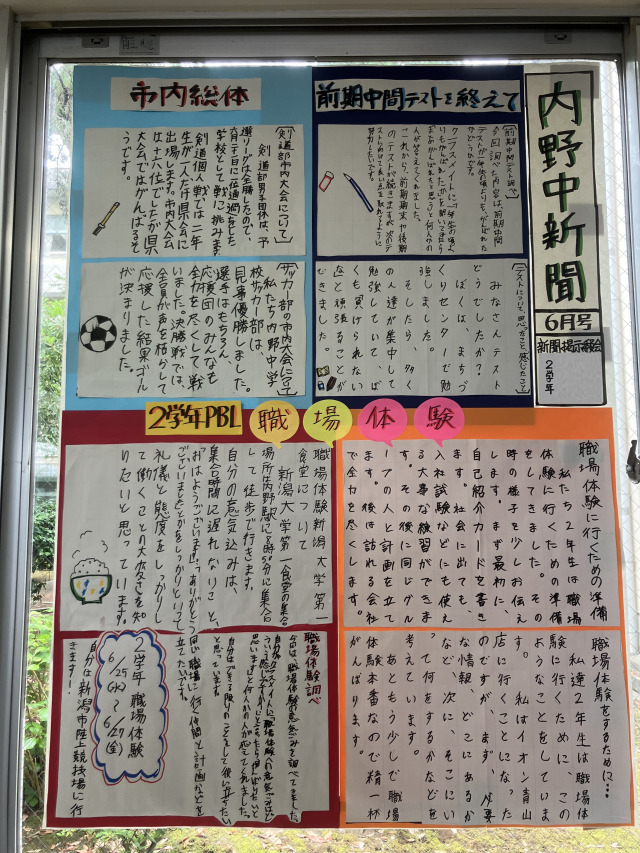 内野中新聞
6月号
新聞掲示委員会
2学年
前期中間テストを終えて
[前期中間テスト調べ]
今回調べた内容は、前期中間
クラスメイトに「一年生の頃よ
これから、前期期末や後期
のテストが続きますが、次のテ
努力したいです。
[テストについて、思ったこと、感じたこと]
みなさんテスト
どうでしたか?
ぼくは、まちづ
くりセンターで勉
強しました。
そしたら、多く
の人達が集中して
勉強していて、ぼ
くも負けられない
な、と頑張ることが
できました。
市内総体
[剣道部市内大会について]
剣道部男子団体は、予
選リーグは全勝したので、
六月二十一日に一位通過をした
学校として戦に挑みます
剣道個人戦では二年
生が一人だけ県大会に
出場します。市内大会
は十八位でしたが県
大会ではがんばるそ
うです。
[サッカー部の市内大会について]
私たち内野中学
校サッカー部は、
見事優勝しました。
選手はもちろん、
応援団のみんなも
全力を尽くして戦
いました。決勝戦では、
全員が声を枯らして
応援した結果、ゴール
が決まりました。
2学年PBL
職場体験
職場体験に行くための準備
私たち2年生は職場
体験に行くための準備
をしてきました。その
時の様子を少しお伝え
します。まず最初に、
自己紹介カードを書き
ます。社会に出ても、
入社試験などにも使え
る大事な練習ができま
す。その後に同じグル
ープの人と計画を立て
ます。後は訪れる会社
で全力を尽くします。
職場体験をするために…
私達2年生は職場体
験に行くために、この
ようなことをしていま
す。私はイオン青山
店に行くことになった
のですが、まず、必要
な情報、どこにあるか
など、次に、そこにい
って何をするかなどを
考えています。
あともう少しで職場
体験本番なので精一杯
がんばります。
職場体験新潟大学第一
食堂について
新潟大学第一食堂の集合
場所は内野駅に8時50分に集合
して徒歩で行きます。
自分の意気込みは、
集合時間に遅れないこと、
「おはようございます」、「ありがとう
ございました」とかをしっかりといって
礼儀と態度をしっかりし
て働くことの大変さを知
りたいと思っています。
職場体験調べ
今回は、職場体験の意気ごみを調べてきました。
思いますか」と何人かの人が応えてくれました。
と思っています。
同じ職場に行く仲間と計画などを
立てたいです。
2学年 職場体験
6/25(水)~6/27(金)
自分は新潟市陸上競技場に行
きます!